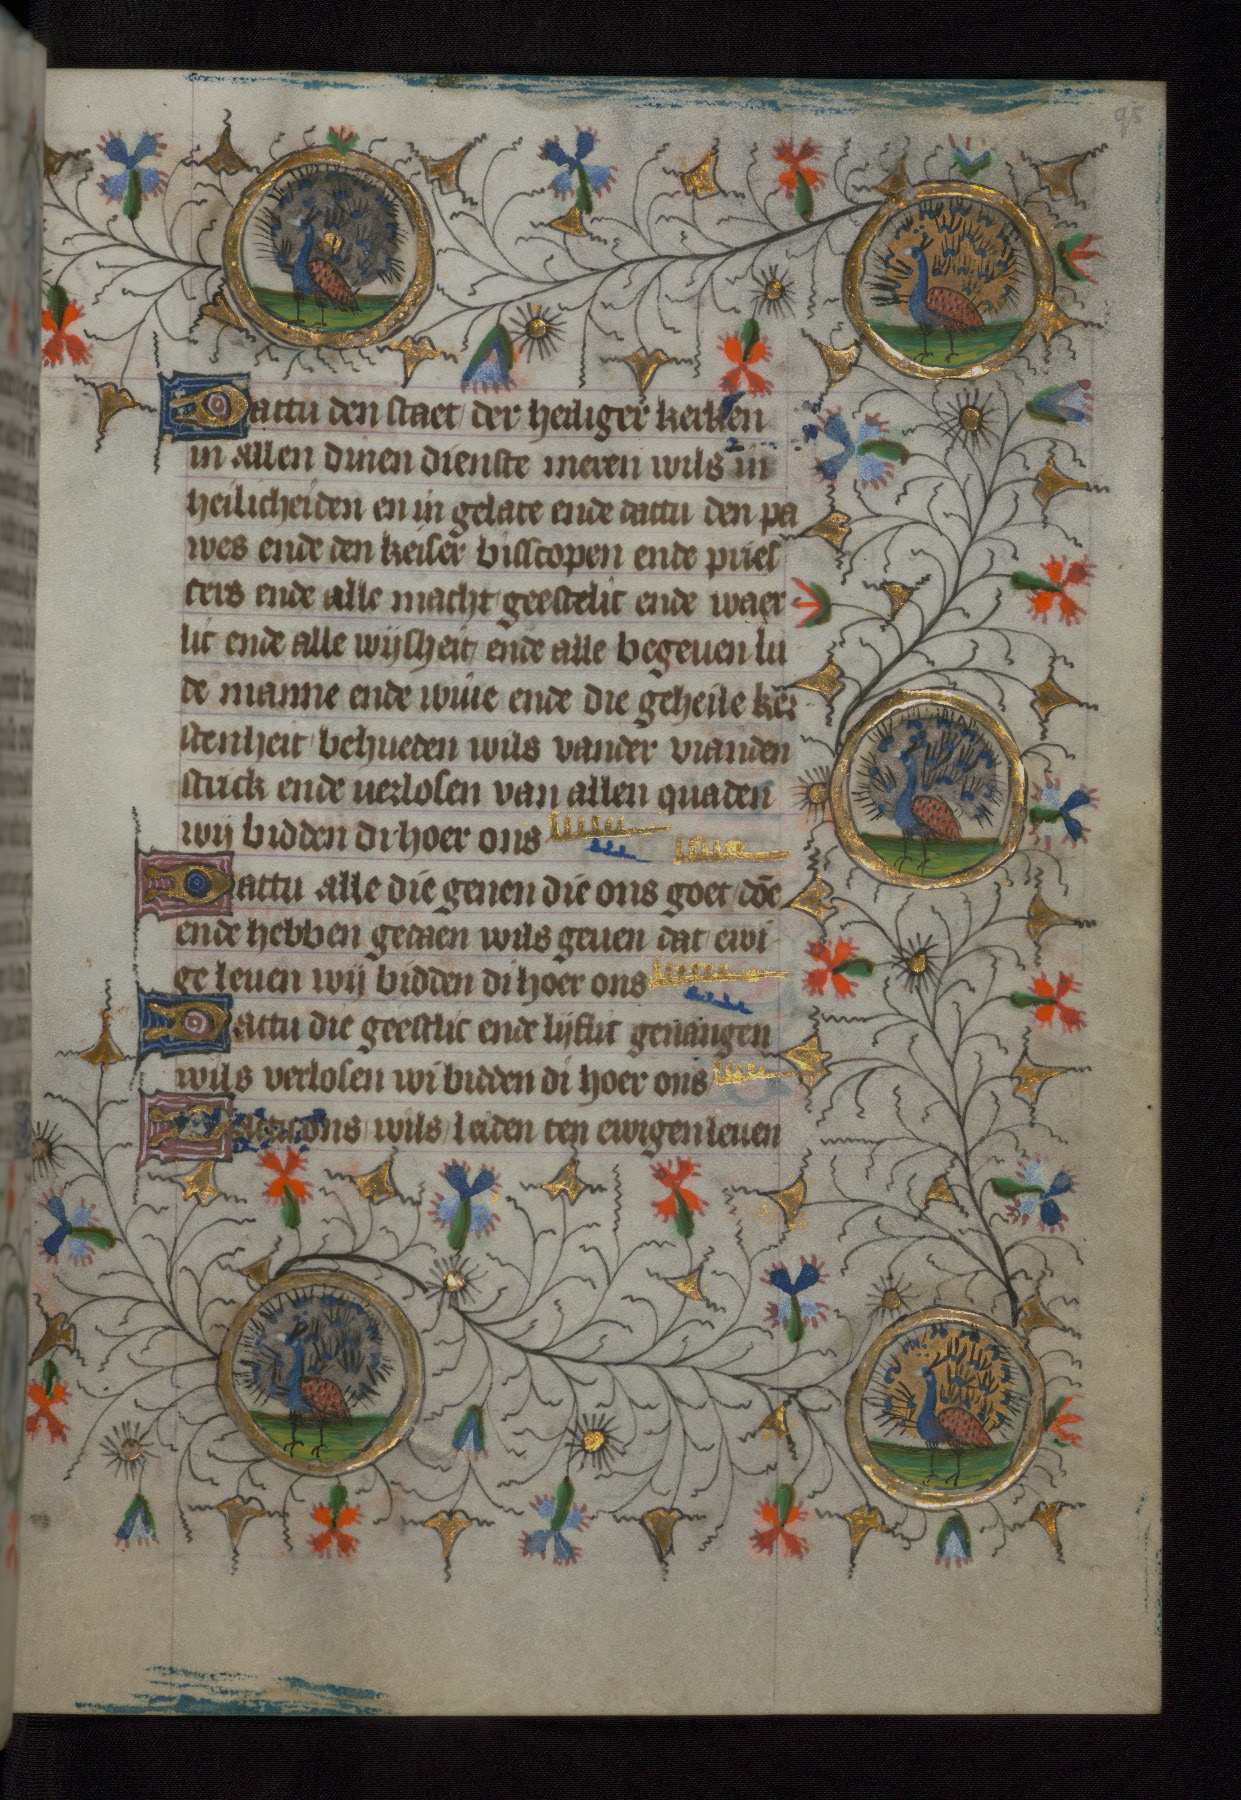 95
Dattu den staet der heiliger kerken
in allen dinen dienste meren wils in
heilicheiden en in gelate ende dattu den pa
wes ende den keiser bisscopen ende pries
ters ende alle macht geestelic ende waer
lic ende alle wijsheit ende alle begeuen lu
de manne ende wiue ende die geheile ker
stenheit behueden wils vander vianden
strick ende verlosen van allen quaden
wij bidden di hoer ons
Dattu alle die genen die ons goet doē
ende hebben gedaen wils geuen dat ewi
ge leuen wij bidden di hoer ons
Dattu die geestlic ende lijflic geuangen
wils verlosen wi bidden di hoer ons
Dattu ons wils leiden ten ewigen leuen